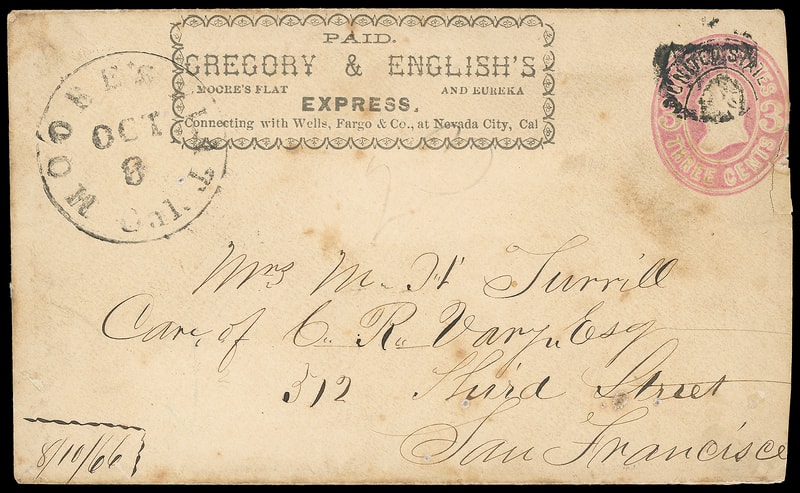 PAID.
GREGORY & ENGLISH'S
MOORE'S FLAT AND EUREKA
EXPRESS.
Connecting with Wells, Fargo & Co., at Nevada City, Cal
MOORE'S FLAT
OCT
8
Cal.
UNITED STATES
3 3
THREE CENTS
Mrs M. H. Turrill
Care, of C. R. Vary, Esq
512 Third Street
San Francisco
8/10/66